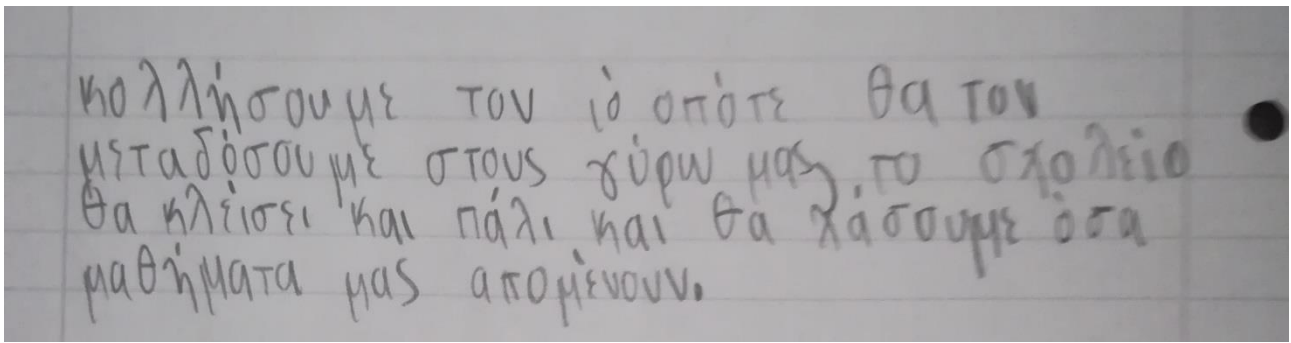 κολλήσουμε τον ιό οπότε θα τον
μεταδόσουμε στους γύρω μας, το σχολείο
θα κλείσει και πάλι και θα χάσουμε όσα
μαθήματα μας απομένουν.